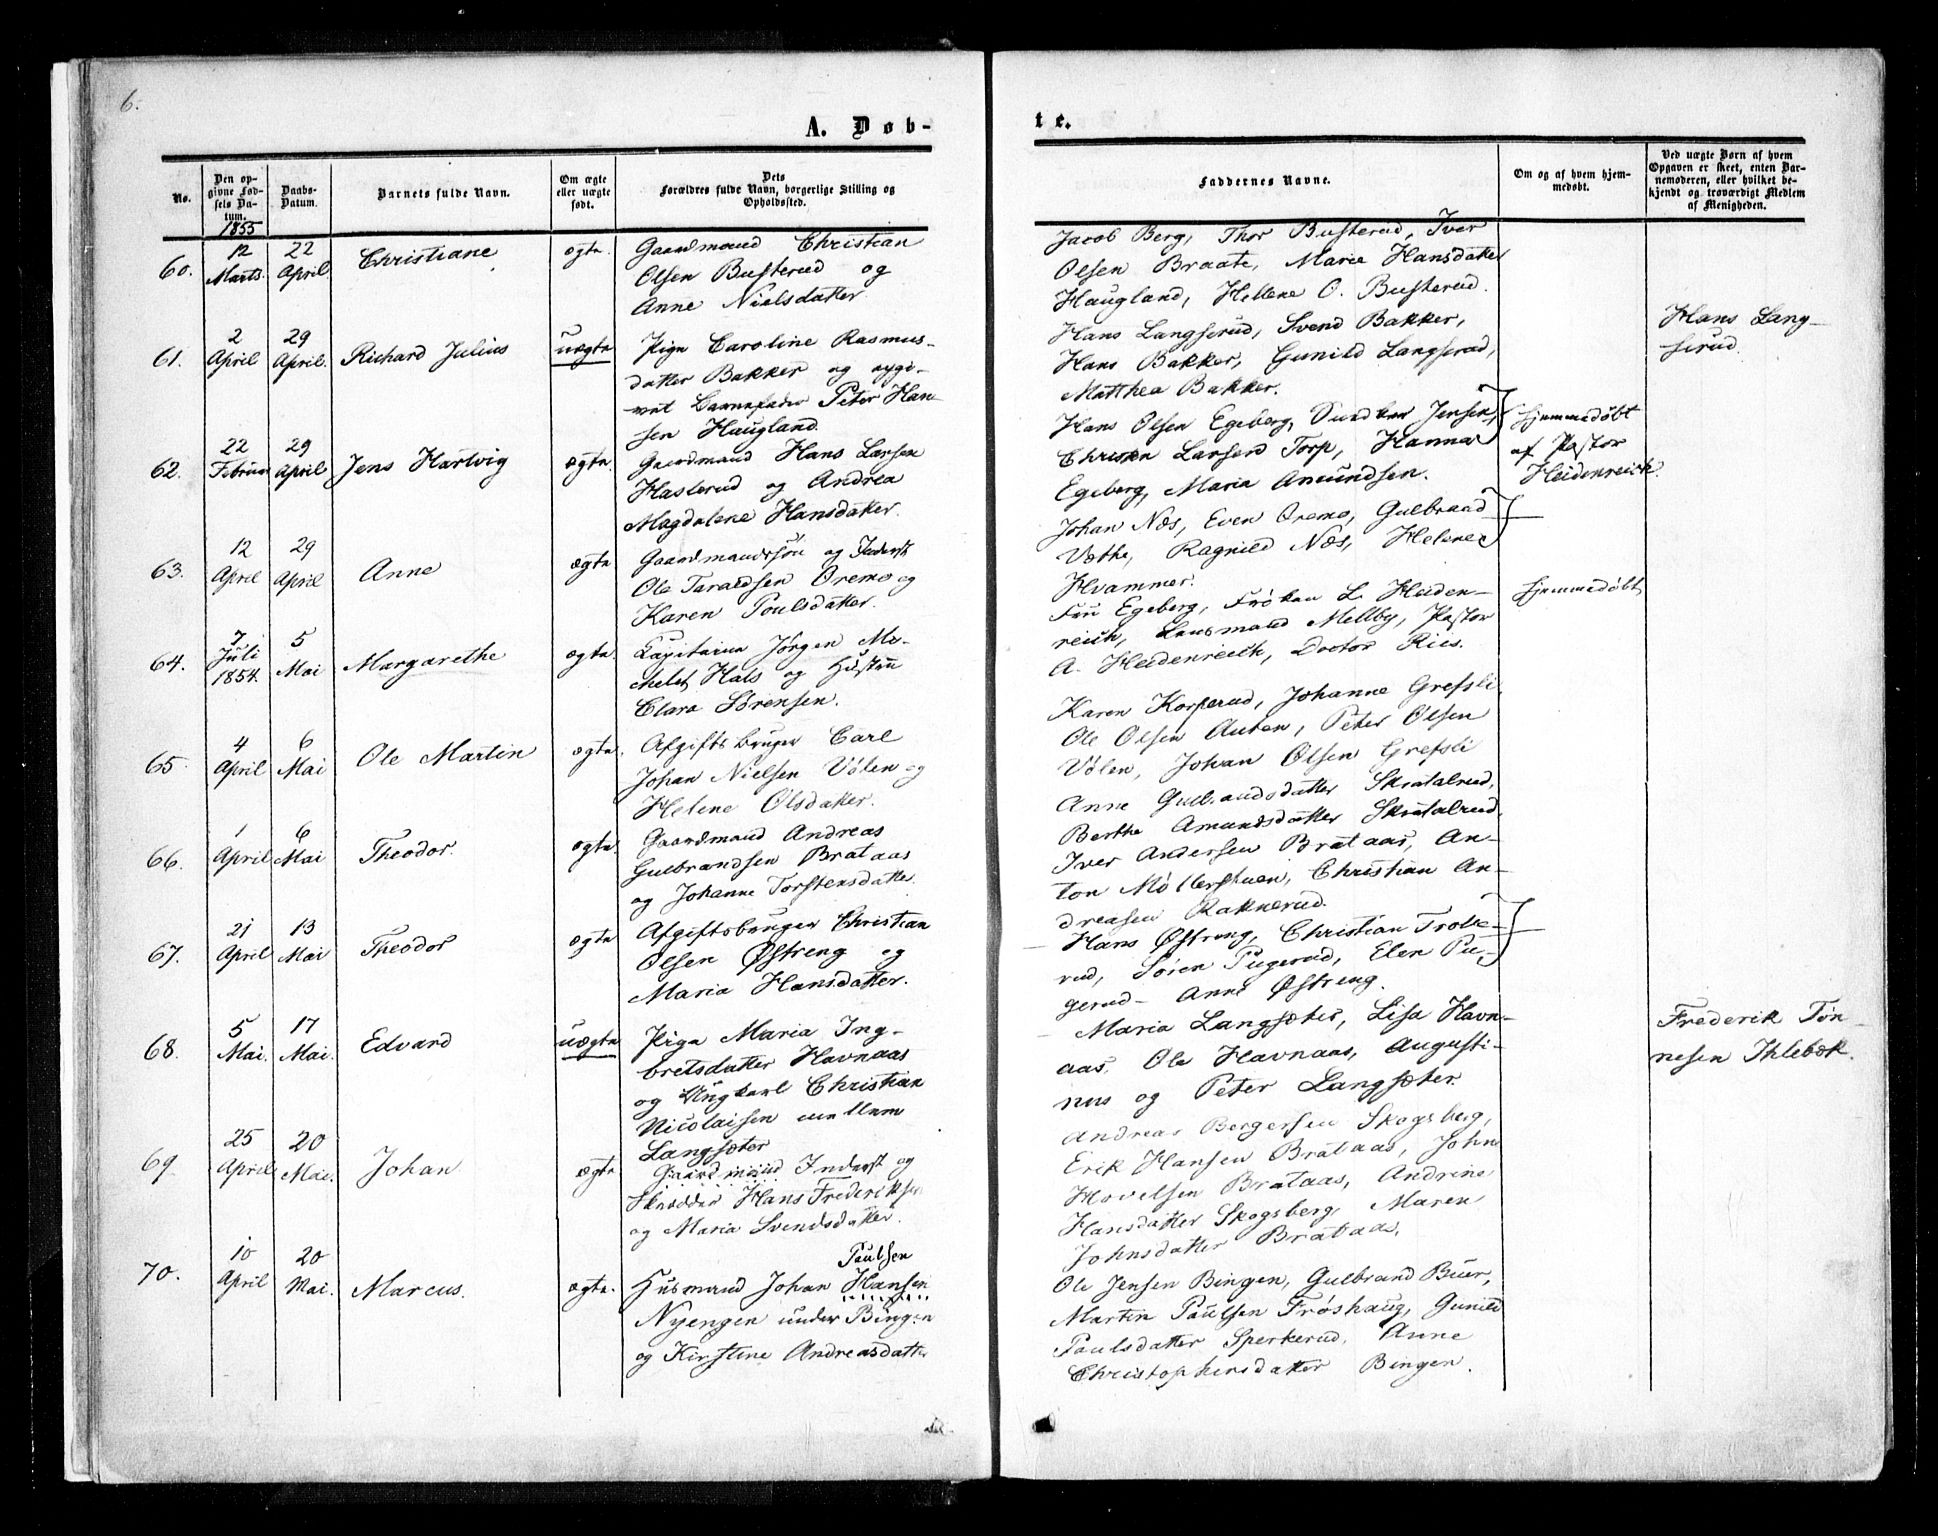 6.
A. Døb-
te.
No.
Den op-
givne Fød-
sels Da-
tum.
Daabs-
Datum.
Barnets fulde Navn.
Om ægte
eller uægte
født.
Dets
Forældres fulde Navn, borgerlige Stilling og
Opholdssted.
Faddernes Navne.
Om og af hvem hjem-
medøbt.
Ved uægte Børn af hvem
Opgaven er skeet, enten Bar-
nemoderen, eller hvilket be-
kjendt og troværdigt Medlem
af Menigheden.
1855
60.
12
Marts.
22
April
Christiane
ægte.
Gaardmand Christian
Olsen Busterud og
Anne Nielsdatter
Jacob Berg, Thor Busterud, Iver
Olsen Braate, Marie Hansdatter
Haugland, Hellene O. Busterud.
61.
2
April
29
April.
Richard Julius
uægte
Pige Caroline Rasmus-
datter Bakker og opgi-
vet Barnefader Peter Han-
sen Haugland.
Hans Langserud, Svend Bakker,
Hans Bakker, Gunild Langserud,
Matthea Bakker.
Hans Lang-
serud.
62.
22
Februar
29
April
Jens Hartvig
ægte
Gaardmand Hans Larsen
Hasterud og Andrea
Magdalene Hansdatter.
Hans Olsen Egeberg, Jensen,
Christen Larsen Torp, Hanna
Egeberg, Maria Amundsen.
Hjemmedøbt
af Pastor
Heidenreich.
63.
12
April
29
April
Anne
ægte
Gaardmandssøn og Inderst
Ole Taraldsen Oremo og
Karen Poulsdatter.
Johan Næs, Even Oremo, Gulbrand
Væthe, Ragnild Næs, Helene
Hvammer.
64.
7
Juli
1854.
5
Mai
Margarethe
ægte
Capitaine Jørgen Mi-
chelet Hals og Hustru
Clara Sørensen.
Fru Egeberg, Frøken L. Heiden-
reich, Lensmand Mellby, Pastor
A. Heidenreich, Doctor Riis.
Hjemmedøbt
65.
4
April
6
Mai
Ole Martin
ægte.
Afgiftsbruger Carl
Johan Nielsen Vølen og
Helene Olsdatter.
Karen Korperud, Johanne Grefsli
Ole Olsen Auten, Peter Olsen
Vølen, Johan Olsen Grefsli
Anne Gulbrandsdatter Skratalrud,
Berthe Amundsdatter Skratalrud.
66.
1
April
6
Mai
Theodor.
ægte
Gaardmand Andreas
Gulbrandsen Brataas
og Johanne Torstensdatter.
Iver Andersen Brataas, An-
ton Møllerstuen, Christian An-
dreasen Raknerud.
67.
21
April
13
Mai
Theodor
ægte
Afgiftsbruger Christian
Olsen Østreng og
Maria Hansdatter.
Hans Østreng, Christian Trobe-
rud, Søren Pugerud, Elen Pu-
gerud - Anne Østreng.
68.
5
Mai.
17
Mai.
Edvard
uægte
Pige Maria Ing-
bretsdatter Havnaas
og Ungkarl Christian
Nicolaisen
Langsæter
Maria Langsæter, Lisa Havn-
aas, Ole Havnaas, Augusti-
nus og Peter Langsæter.
Frederik Tøn-
nesen Ihlebæk.
69
25
April
20
Mai.
Johan
ægte
Gaardmand Inderst og
Skrædder Hans Frederiksen
og Maria Svendsdatter.
Andreas Bergersen Skogsberg,
Erik Hansen Brataas, John
Hovelsen Brataas, Andrine
Hansdatter Skogsberg, Maren
Johnsdatter Brataas.
70.
10
April
20
Mai.
Marcus.
ægte.
Paulsen
Husmand Johan Hansen
Nyengen under Bingen
og Kirstine Andreasdatter
Ole Jensen Bingen, Gulbrand Buer,
Martin Paulsen Frøshaug, Gunild
Paulsdatter Sperkerud, Anne
Christophersdatter Bingen.